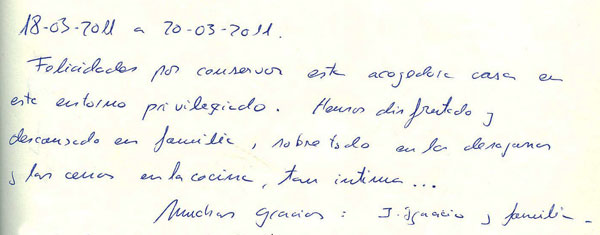 18-03-2011 a 20-03-2011.
Felicidades por conservar esta acogedora casa en
este entorno privilegiado. Hemos disfrutado y
descansado en familia, sobre todo en los desayunos
y las cenas en la cocina, tan intima...
Muchas gracias: J. Ignacio y familia.